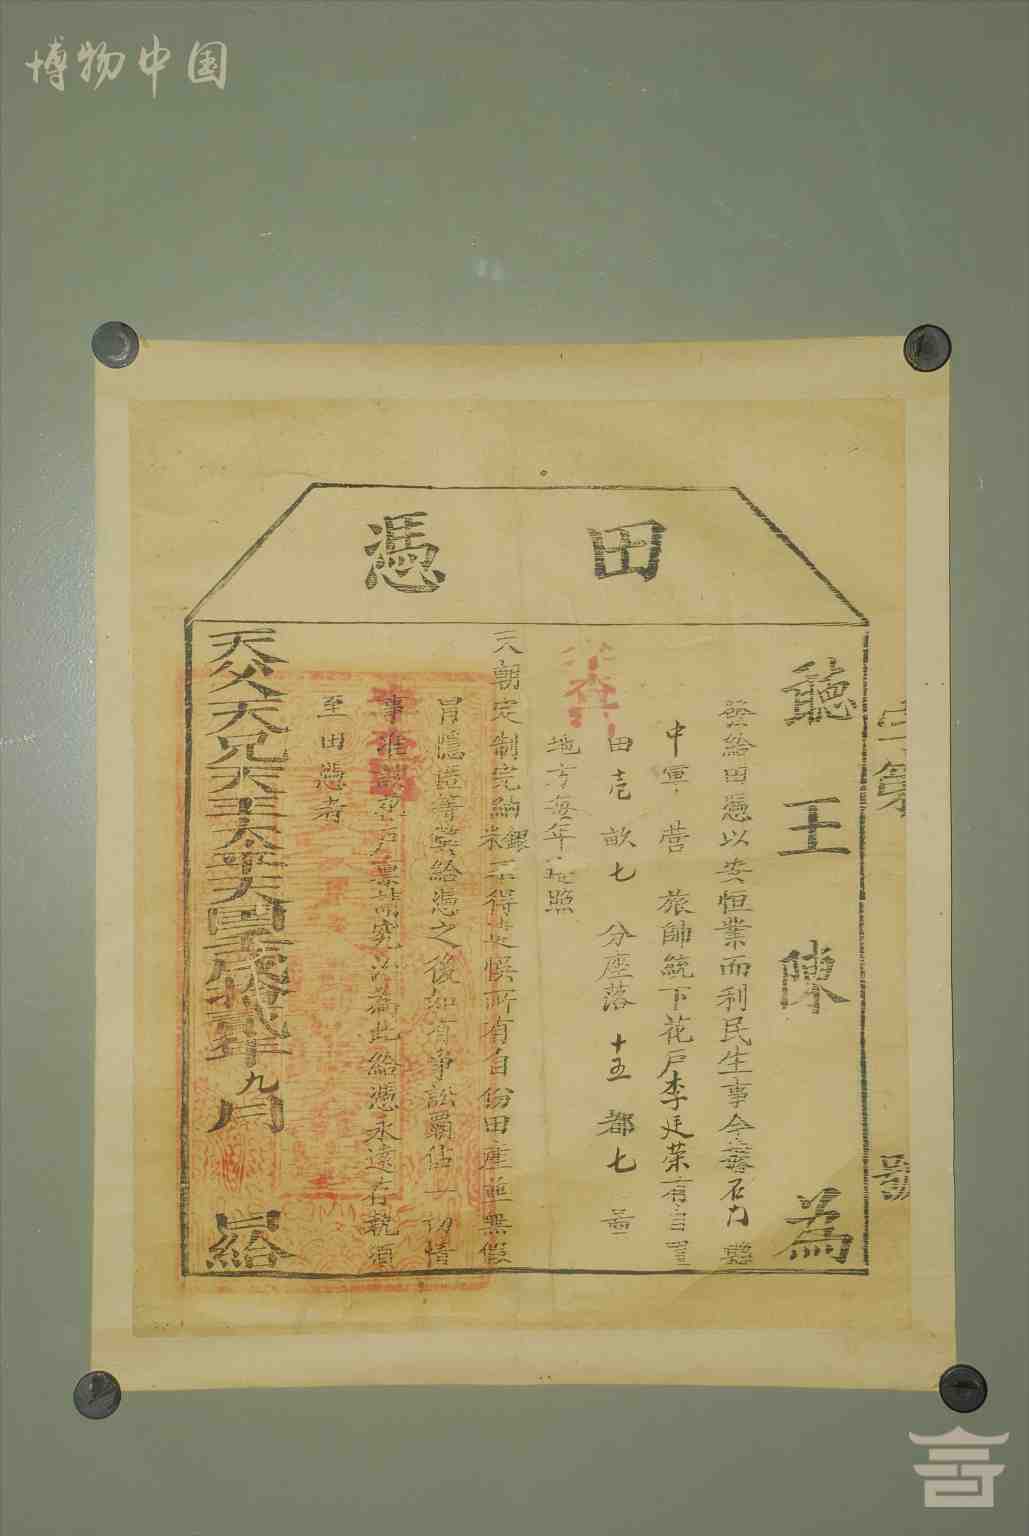 博物中国
田憑
字第 號
聽王陳 爲
發給田憑以安恒業而利民生事今據石門縣
中軍 營 旅帥統下花戶李廷荣有自置
田壱畝七分座落十五都七啚
地方每年遵照
天朝定制完納銀米不得遲悞所有自份田產並無假
冒隱匿等獘給憑之後如有爭訟霸佔一切情
事准該業戶禀請究治爲此給憑永遠存執須
至田憑者
天父天兄天王太平天囯壬戌拾貳年九月 日給